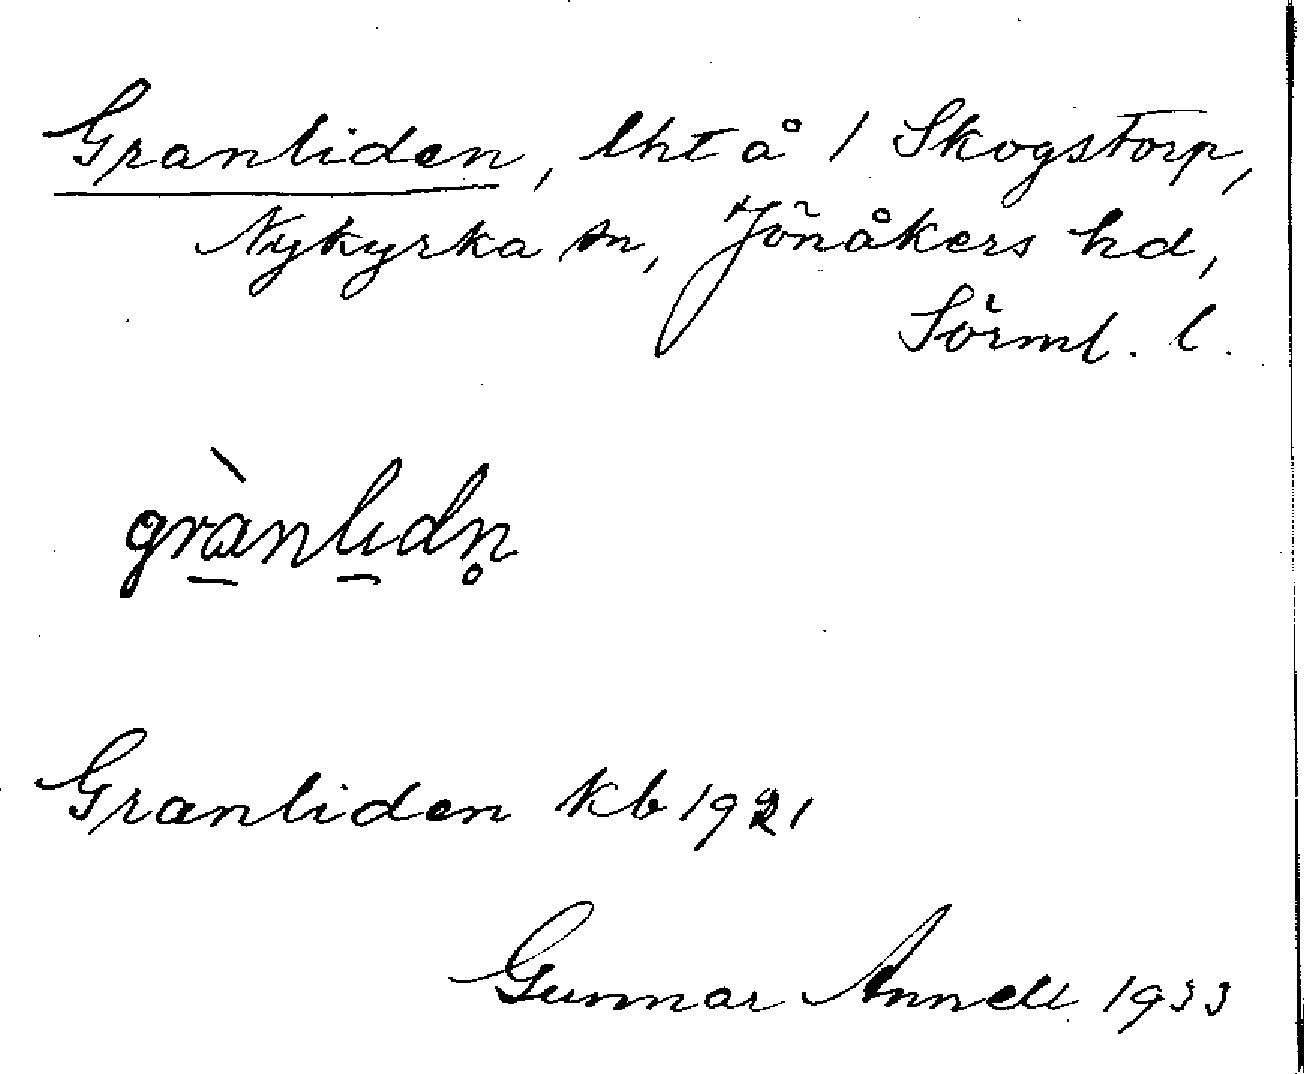 Granliden, lht å 1 Skogstorp,
Nykyrka sn, Jönåkers hd,
Sörml. l.
grànlidn̥
Granliden kb 1921
Gunnar Annell 1933